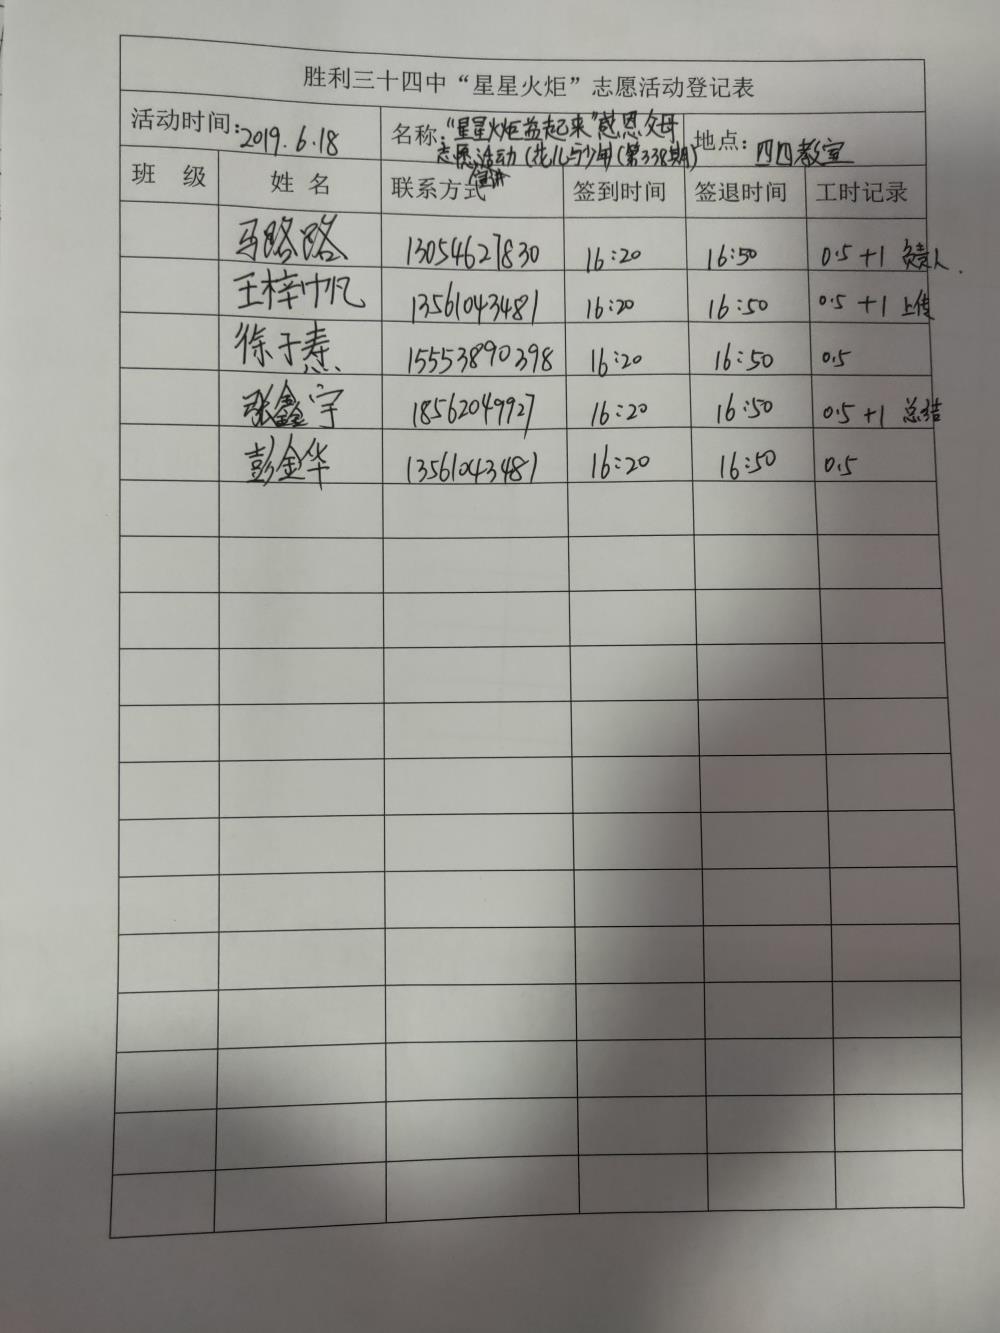 胜利三十四中“星星火炬”志愿活动登记表
活动时间：2019.6.18 名称：“星星火炬益起来”感恩父母 地点：四四教室
志愿活动（花儿与少年（第338期）
宣讲
班 级 姓 名 联系方式 签到时间 签退时间 工时记录
马路路 13054627830 16:20 16:50 0.5+1 负责人.
王梓帆 13561043481 16:20 16:50 0.5+1 上传
徐子焘 15553890398 16:20 16:50 0.5
张鑫宇 18562049927 16:20 16:50 0.5+1 总结
彭金华 13561043481 16:20 16:50 0.5